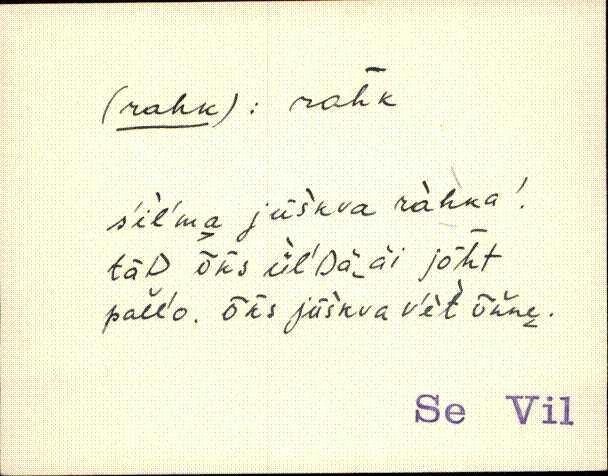 (rahk): rah̄k
s'ìl'ma̬ jūškva ràhka!
tāD ȭǹs ǜl'Dä äi jōh̄t
pall'o. ȭǹs jūškva v'èt̀ ȭňne̬.
Se Vil